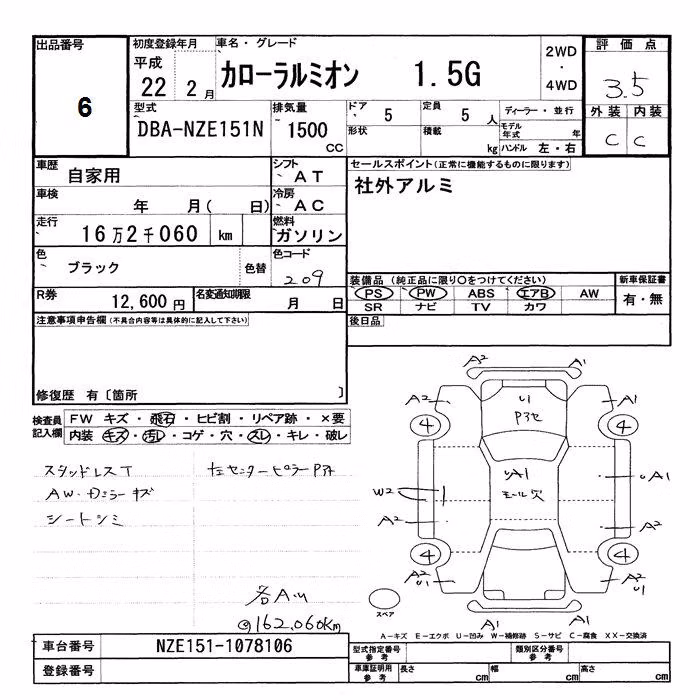 出品番号
6
初度登録年月
平成
22 2月
車名・グレード
カローラルミオン 1.5G
2WD
・
4WD
評価点
3.5
外装 内装
C C
型式
DBA-NZE151N
排気量
1500
CC
ドア
5
定員
5 人
ディーラー・並行
形状
積載
kg
モデル年式
年
ハンドル 左・右
車歴
自家用
シフト
AT
車検
年 月( 日)
冷房
AC
走行
16万2千060 km
燃料
ガソリン
色
ブラック
色替
色コード
209
R券
12,600 円
名変通知期限
月 日
セールスポイント(正常に機能するものに限ります)
社外アルミ
装備品(純正品に限り○をつけてください)
PS PW ABS エアB AW
SR ナビ TV カワ
新車保証書
有・無
後日品
注意事項申告欄(不具合内容等は具体的に記入して下さい)
修復歴 有〔箇所 〕
検査員記入欄
FW キズ・飛石・ヒビ割・リペア跡・×要
内装 キズ・汚レ・コゲ・穴・スレ・キレ・破レ
スタッドレスT
左センターピラーPスケ
AW・Dミラーキズ
シートシミ
各AU
@162,060km
A2 A1
A2 U1 A1
P3セ
4 4
A1 A1
W2 モール欠
A2 A2
4 4
A2 U1 A2 U1
スペア
A1 A1
A-キズ E-エクボ U-凹み W-補修跡 S-サビ C-腐食 XX-交換済
車台番号
NZE151-1078106
登録番号
型式指定番号
参考
類別区分番号
参考
車庫証明用
参考
長さ cm 幅 cm 高さ cm